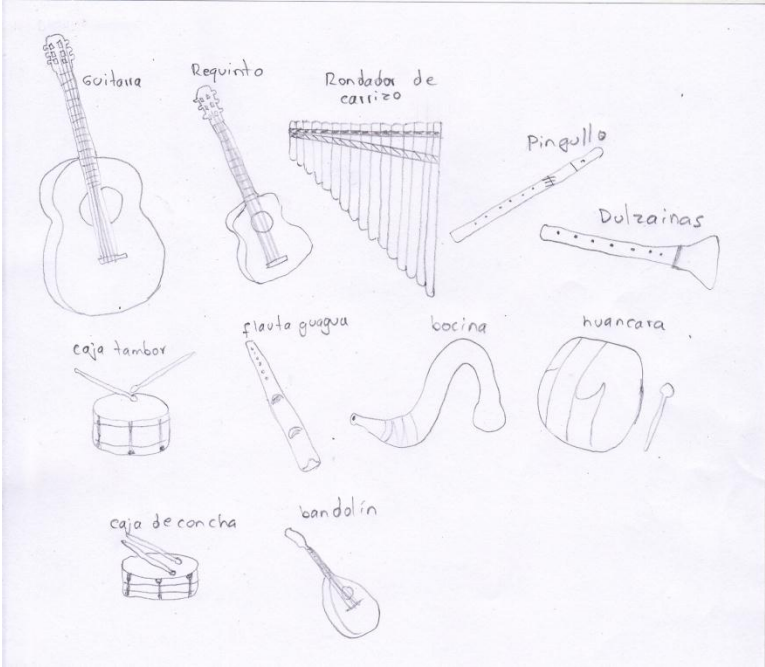 Guitarra
Requinto
Rondador de
carrizo
Pingullo
Dulzainas
caja tambor
flauta guagua
bocina
huancara
caja de concha
bandolín